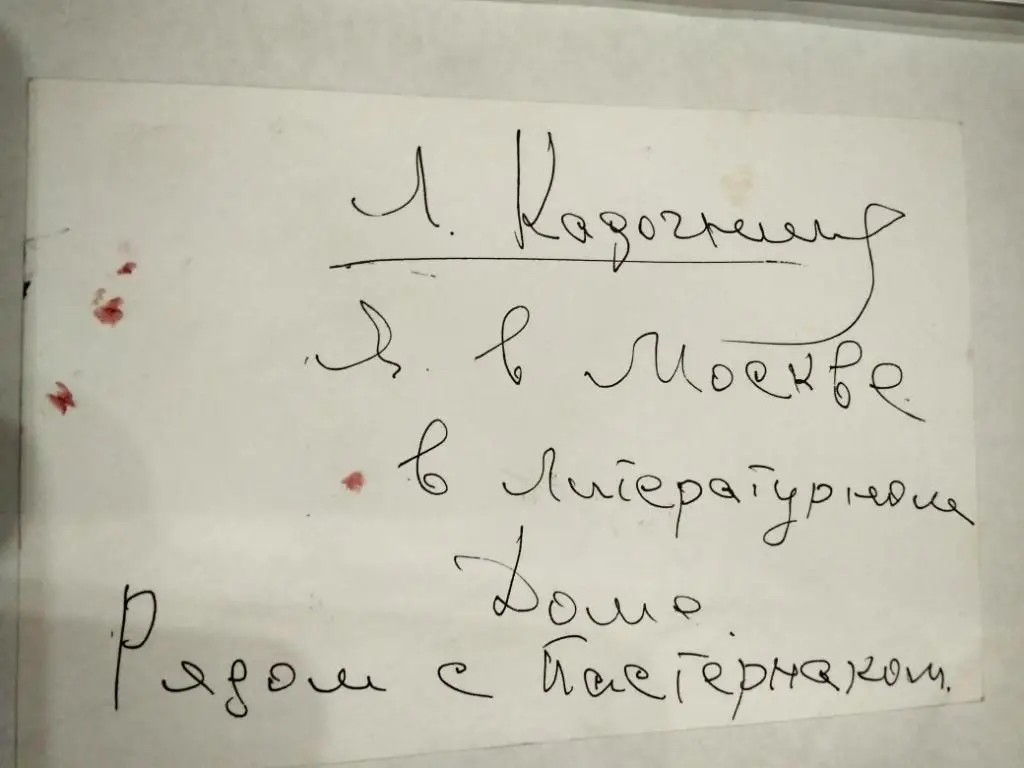 Л. Кадочникова
Я в Москве
в Литературном
Доме.
Рядом с Пастернаком.